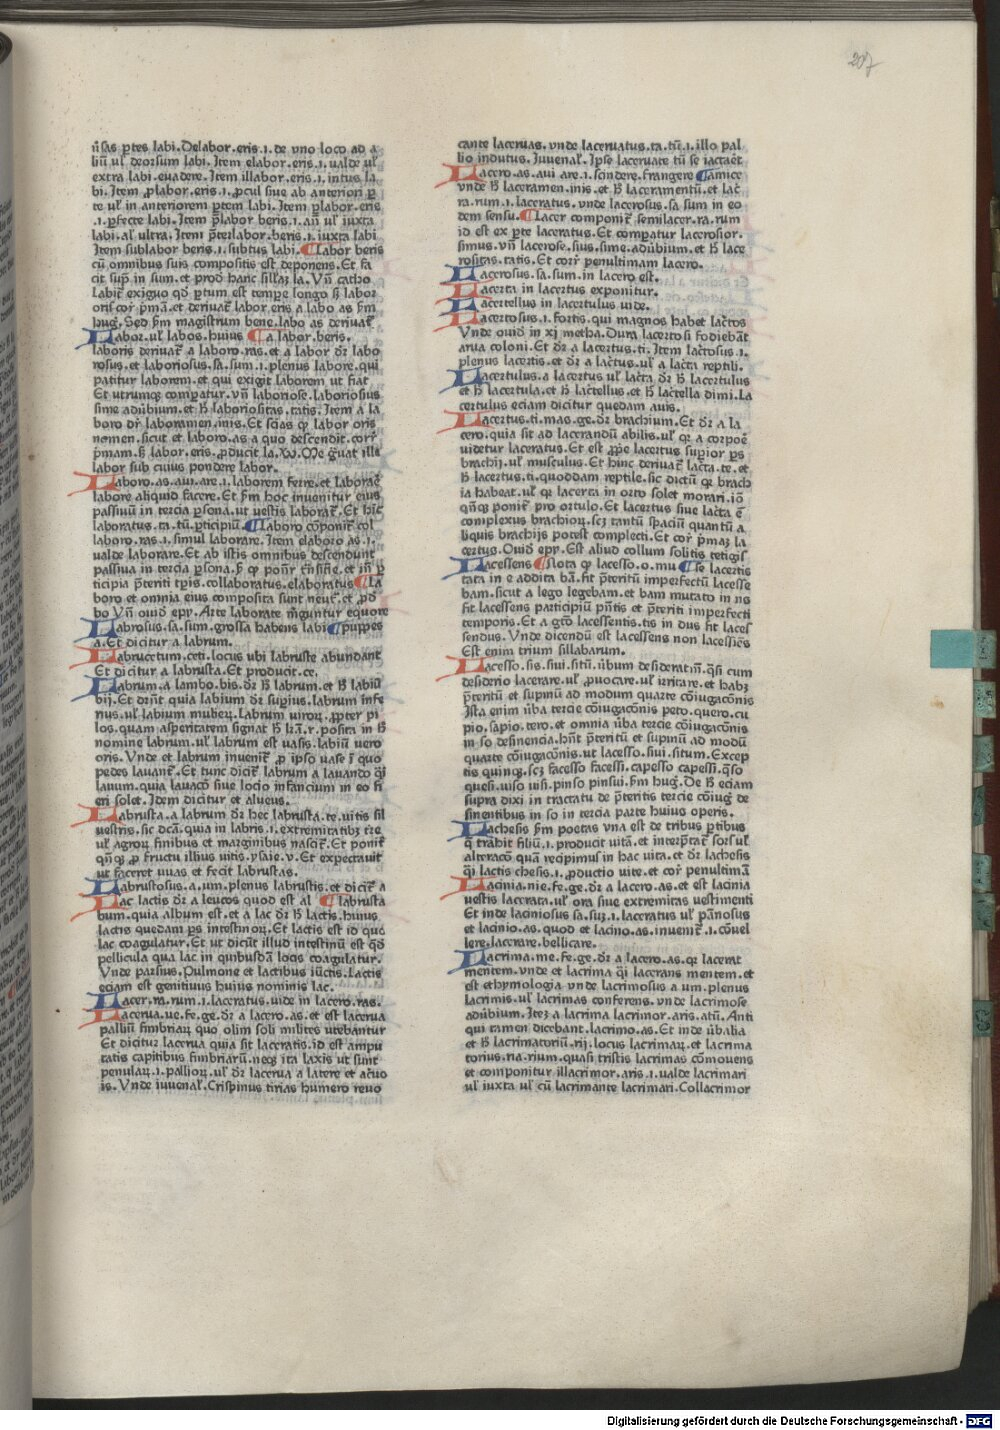 207
ūsas ꝑtes labi. Delabor.eris.i. de vno loco ad a
liū ul' deorsum labi. Item elabor.eris.i. ualde ul'
extra labi.euadere. Item illabor.eris.i. intus la
bi. Item ꝓlabor.eris.i. ꝓcul siue ab anteriori ꝑ
te ul' in anteriorem ꝑtem labi. Item ꝑlabor.eris
.i. ꝑfecte labi. Item p̄labor beris.i. aū ul' iuxta
labi. al' ultra. Item p̄terlabor.beris.i. iuxta labi
Item sublabor beris.i. subtus labi. ¶ Labor beris
cū omnibus suis compositis est deponens. Et fa
cit sup̄ in sum. et prod̄ hanc sillaƺ la. Vn̄ catho
Labit̄ exiguo qd̄ ꝑtum est tempe longo
oris cor̄ p̄mā. et deriuat̄ labor eris a labo as ẜm
huḡ. Sed ẜm magistrum bene. labo as deriuat̄
Labor. ul' labos. huius ¶ a labor.beris.
laboris deriuat̄ a laboro.ras. et a labor dr̄ labo
rosus. et laboriosus.sa.sum.i. plenus labore. qui
patitur laborem. et qui exigit laborem ut fiat
Et utrumqƺ comꝑatur. vn̄ laboriose. laboriosius
sime adūbium. et ħ laboriositas.tatis. Item a la
boro dr̄ laboramen.inis. Et scias qꝫ labor oris
nomen. sicut et laboro. as a quo descendit. corr̄
p̄mam. ẜ labor.eris. ꝓducit la.
labor sub cuius pondere labor.
Laboro.as.aui.are.i. laborem ferre. et laboraē
labore aliquid facere. Et ẜm hoc inuenitur eius
passiuū in tercia ꝑsona. ut uestis laborat̄. Et hic̄
laboratus.ta.tū. ꝑticipiū. ¶ Laboro cōponit̄ col
laboro.ras.i. simul laborare. Item elaboro as.i.
ualde laborare. Et ab istis omnibus descendunt
passiua in tercia ꝑsona. et in ꝑ
ticipia p̄teriti tꝑis. collaboratus. elaboratus ¶ La
boro et omnia eius composita sunt neut̄. et ꝓd̄
bo Vn̄ ouid epy. Arte laborate m̄guntur equore
Labrosus.sa.sum. grossa habens labi ¶ puppes
a. Et dicitur a labrum.
Labrucetum.ceti. locus ubi labruste abundant
Et dicitur a labrusta. Et producit.ce.
Labrum. a lambo.bis. dr̄ ħ labrum. et ħ labiū
bij. Et dr̄nt quia labium dr̄ suꝑius. labrum infe
rius. ul' labium muliеꝝ. Labrum uiroꝝ. ꝓpter pi
los. quam asperitatem signat ħ lr̄a. r. posita in ħ
nomine labrum. ul' labrum est uasis. labiū uero
oris. Vnde et labrum inuenit̄ ꝓ ipso uase ī quo
pedes lauant̄. Et tunc dicit̄ labrum a lauando q̄i
lauum. quia lauacō siue locio infancium in eo fi
eri solet. Idem dicitur et alueus.
Labrusta. a labrum dr̄ hec labrusta.te. uitis sil
uestris. sic dcā. quia in labris.i. extremitatibƺ tr̄e
ul' agroꝝ finibus et marginibus nascit̄. Et ponit̄
qn̄qƺ ꝓ fructu illius uitis. ysaie.v. Et expectauit
ut faceret uuas et fecit labrustas.
Labrustosus.a.um. plenus labrustis. et dicit̄ a
Lac lactis dr̄ a leucos quod est al ¶ labrusta
bum. quia album est. et a lac dr̄ ħ lactis. huius
lactis quedam ꝑs intestinoꝝ. Et lactis est id quo
lac coagulatur. Et ut dicūt illud intestinū est qd̄
pellicula qua lac in quibusdā locis coagulatur.
Vnde parsius. Pulmone et lactibus iūctis. Lactis
eciam est genitiuus huius nominis lac.
Lacer.ra.rum.i. laceratus. uide in lacero.ras.
Lacerua.ue.fe.ge. dr̄ a lacero.as. et est lacerua
palliū fimbriaꝝ quo olim soli milites utebantur
Et dicitur lacerua quia sit laceratis. id est ampu
tatis capitibus fimbriarū. neqƺ ita laxis ut sunt
penulaꝝ.i. pallioꝝ. ul' dr̄ lacerua a latere et acuo
is. Vnde iuuenal̄. Crispinus tirias humero reuo
cante laceruas. vnde laceruatus.ta.tū.i. illo pal
lio indutus. Iuuenal̄. Ipse laceruate tū se iactaēt
Lacero.as.aui are.i. scindere. frangere ¶ amice
vnde ħ laceramen.inis. et ħ laceramentū. et lac̄
ra.rum.i. laceratus. vnde lacerosus.sa sum in eo
dem sensu. ¶ Lacer componit̄ semilacer.ra.rum
id est ex ꝑte laceratus. Et comꝑatur lacerosior.
simus. vn̄ lacerose.sius.sime. adūbium. et ħ lace
rositas.tatis. Et corr̄ penultimam lacero.
Lacerosus.sa.sum. in lacero est.
Lacerta in lacertus exponitur.
Lacertellus in lacertulus uide.
Lacertosus.i. fortis. qui magnos habet lac̄tos
Vnde ouid in xj metha. Dura lacertosi fodiebāt
arua coloni. Et dr̄ a lacertus.ti. Item lac̄tosus.i.
plenus lacertis. et dr̄ a lac̄tus. ul' a lac̄ta reptili.
Lacertulus. a lacertus ul' lac̄ta dr̄ ħ lacertulus
et ħ lacertula. et ħ lac̄tellus. et ħ lac̄tella dimi. La
certulus eciam dicitur quedam auis.
Lacertus.ti.mas.ge. dr̄ brachium. Et dr̄ a la
cero. quia sit ad lacerandū abilis. ul' qꝛ a corpoē
uidetur laceratus. Et est ꝓpe lacertus suꝑior ꝑs
brachij. ul' musculus. Et hinc deriuat̄ lac̄ta.te. et
ħ lacertus.ti. quoddam reptile. sic dictū qꝛ brach
ia habeat. ul' qꝛ lacerta in orto solet morari. iō
qn̄qƺ ponit̄ pro ortulo. Et lacertus siue lac̄ta ē
complexus brachioꝝ. scƺ tantū spaciū quantū a
liquis brachijs potest complecti. Et cor̄ p̄maƺ la
certus. Ouid epy. Est aliud collum solitis tetigis
Lacessens ¶ Nota qꝫ lacesso.o.mu ¶ se lacertis
tata in e addita bā. fit p̄teritū imperfectū lacesse
bam. sicut a lego legebam. et bam mutato in ns
fit lacessens participiū p̄ntis et p̄teriti imperfecti
temporis. Et a gtō lacessentis.tis in dus fit laces
sendus. Vnde dicendū est lacessens non lacessiēs
Est enim trium sillabarum.
Lacesso.sis.siui.sitū. ūbum desideratiū. q̄si cum
desiderio lacerare. ul' ꝓuocare. ul' irritare. et habƺ
p̄teritū et supinū ad modum quarte cōiugacōnis
Ista enim ūba tercie cōiugacōnis peto. quero. cu
pio. sapio. tero. et omnia ūba tercie cōiugacōnis
in so desinencia. hn̄t p̄teritū et supinū ad modū
quarte cōiugacōnis. ut lacesso.siui.situm. Excep
tis quinqƺ. scƺ facesso facessi. capesso capessi. q̄so
quesi. uiso uisi. pinso pinsui. ẜm huḡ. De ħ eciam
supra dixi in tractatu de p̄teritis tercie cōiuḡ de
sinentibus in so in tercia parte huius operis.
Lachesis ẜm poetas vna est de tribus ꝑtibus
q̄ trahit filiū.i. producit uitā. et interp̄tat̄ sors ul'
alteracō quā recipimus in hac uita. et dr̄ lachesis
q̄i lactis chesis.i. ꝓductio uite. et cor̄ penultimā
Lacinia.nie.fe.ge. dr̄ a lacero.as. et est lacinia
uestis lacerata. ul' ora siue extremitas uestimenti
Et inde laciniosus sa.suƺ.i. laceratus ul' pānosus
et lacinio.as. quod et lacino.as. inuenit̄.i. cōuel
lere. lacerare. bellicare.
Lacrima.me.fe.ge. dr̄ a lacero.as. qꝛ lacerat
mentem. vnde et lacrima q̄i lacerans mentem. et
est ethymologia vnde lacrimosus a um. plenus
lacrimis. ul' lacrimas conferens. vnde lacrimose
adūbium. Iteƺ a lacrima lacrimor.aris.atū. Anti
qui tamen dicebant. lacrimo.as. Et inde ūbalia
et ħ lacrimatoriū.rij. locus lacrimaꝝ. et lacrima
torius.ria.rium. quasi tristis lacrimas cōmouens
et componitur illacrimor.aris.i. ualde lacrimari
ul' iuxta ul' cū lacrimante lacrimari. Collacrimor
Digitalisierung gefördert durch die Deutsche Forschungsgemeinschaft - DFG